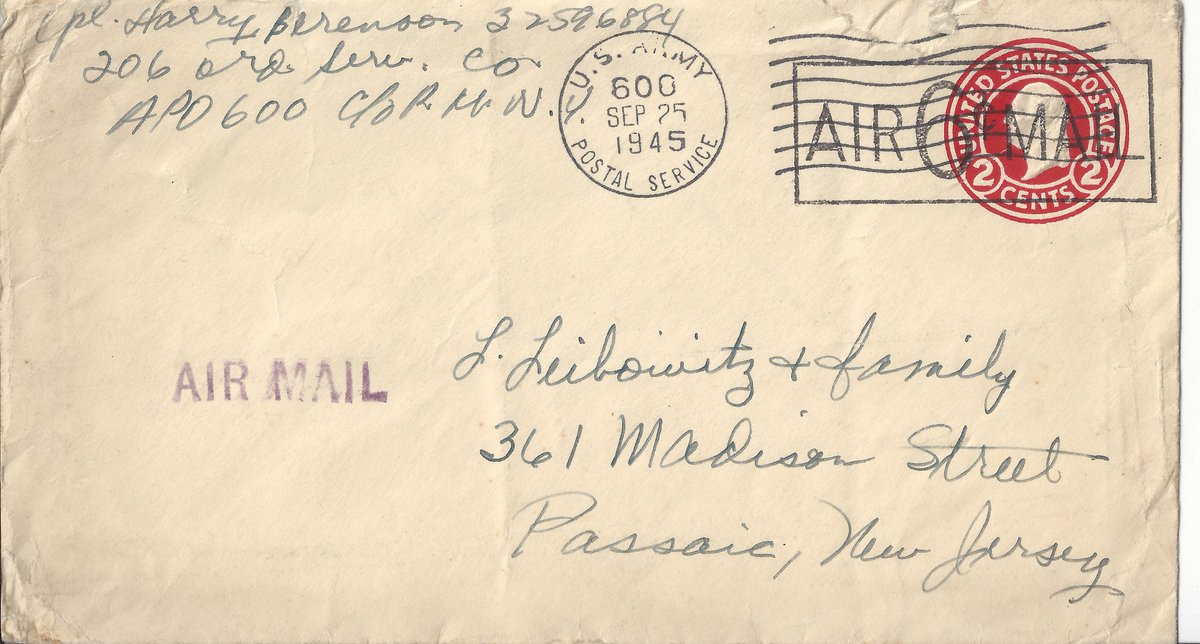 Cpl. Harry Berenson 32596884
206 Ord. Serv. Co
APO 600 C/O P. M. N. Y.
U.S. ARMY
600
SEP 25
1945
POSTAL SERVICE
AIR 6¢ MAIL
UNITED STATES POSTAGE
2 CENTS 2
AIR MAIL
L. Leibowitz & family
361 Madison Street
Passaic, New Jersey